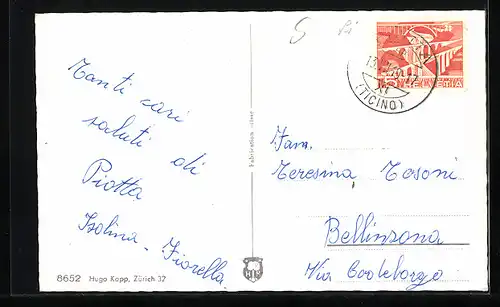 Tanti cari
saluti di
Piotta
Isolina - Fiorella
8652 Hugo Kopp, Zürich 37
HELVETIA
(TICINO)
Fam.
Teresina Tosoni
Bellinzona
Via